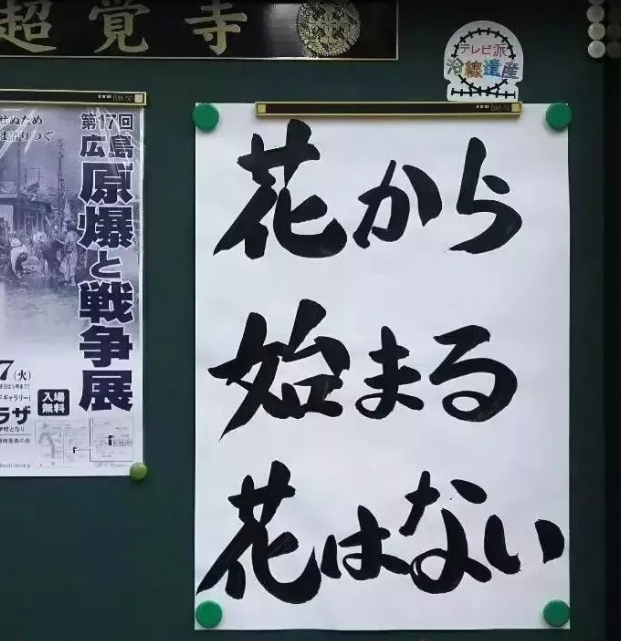 超覚寺
テレビ派
沿線遺産
花から
始まる
花はない
第17回
広島
原爆と戦争展
せぬため
7(火)
入場
無料
ラザ